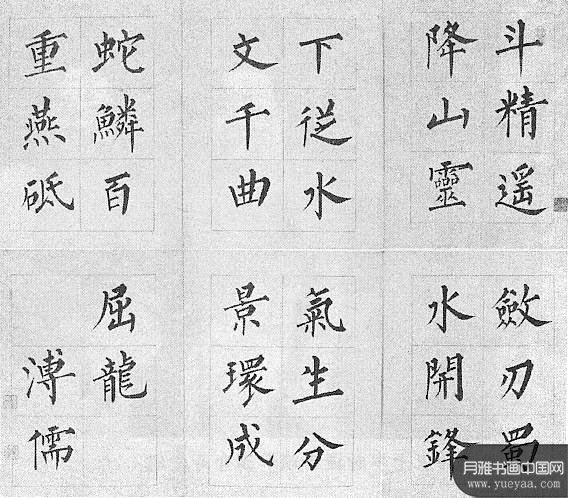 斗精遙
降山靈
下從水
文千曲
蛇鱗百
重燕砥
斂刃蜀
水開鋒
氣生分
景環成
屈龍
溥儒
月雅书画中国网
www.yueyaa.com